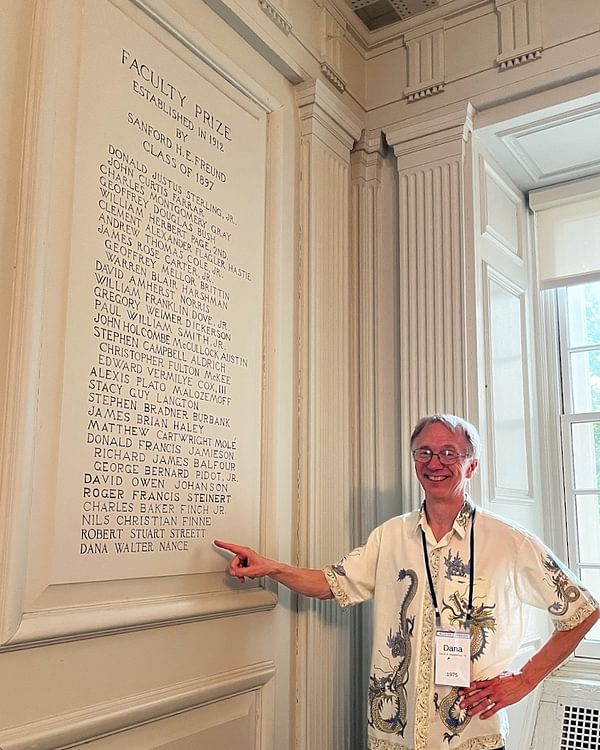 FACULTY PRIZE
ESTABLISHED IN 1912
BY
SANFORD H. E. FREUND
CLASS OF 1897
DONALD JUSTUS STERLING, JR.
JOHN CURTIS FARRAR
CHARLES MONTGOMERY GRAY
GEOFFREY DOUGLAS BUSH
WILLIAM HERBERT PAGE, 2ND
CLEMENT ALEXANDER FLAGLER HASTIE
ANDREW THOMAS COLE, JR.
JAMES ROSE CARTER, JR.
GEOFFREY MELLOR BRITTIN
WARREN BLAIR HARSHMAN
DAVID AMHERST NORRIS
WILLIAM FRANKLIN DOVE, JR.
GREGORY WEIMER DICKERSON
PAUL WILLIAM SMITH, JR.
JOHN HOLCOMBE McCULLOCK AUSTIN
STEPHEN CAMPBELL ALDRICH
CHRISTOPHER FULTON McKEE
EDWARD VERMILYE COX, III
ALEXIS PLATO MALOZEMOFF
STACY GUY LANGTON
STEPHEN BRADNER BURBANK
JAMES BRIAN HALEY
MATTHEW CARTWRIGHT MOLÉ
DONALD FRANCIS JAMIESON
RICHARD JAMES BALFOUR
GEORGE BERNARD PIDOT, JR.
DAVID OWEN JOHANSON
ROGER FRANCIS STEINERT
CHARLES BAKER FINCH JR.
NILS CHRISTIAN FINNE
ROBERT STUART STREETT
DANA WALTER NANCE
Dana
1975